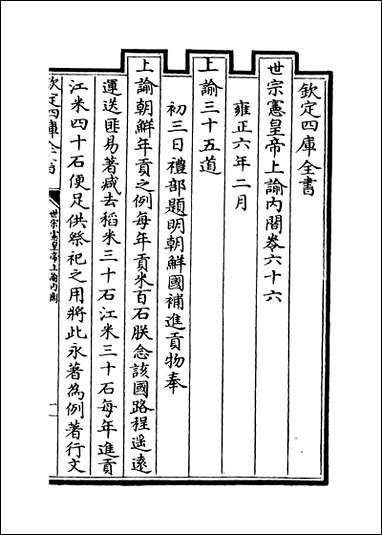 欽定四庫全書
世宗憲皇帝上諭內閣卷六十六
雍正六年二月
上諭三十五道
初三日禮部題明朝鮮國補進貢物奉
上諭朝鮮年貢之例每年貢米百石朕念該國路程遥遠
運送匪易著減去稻米三十石江米三十石每年進貢
江米四十石便足供祭祀之用將此永著為例著行文
欽定四庫全書
世宗憲皇帝上諭內閣
一